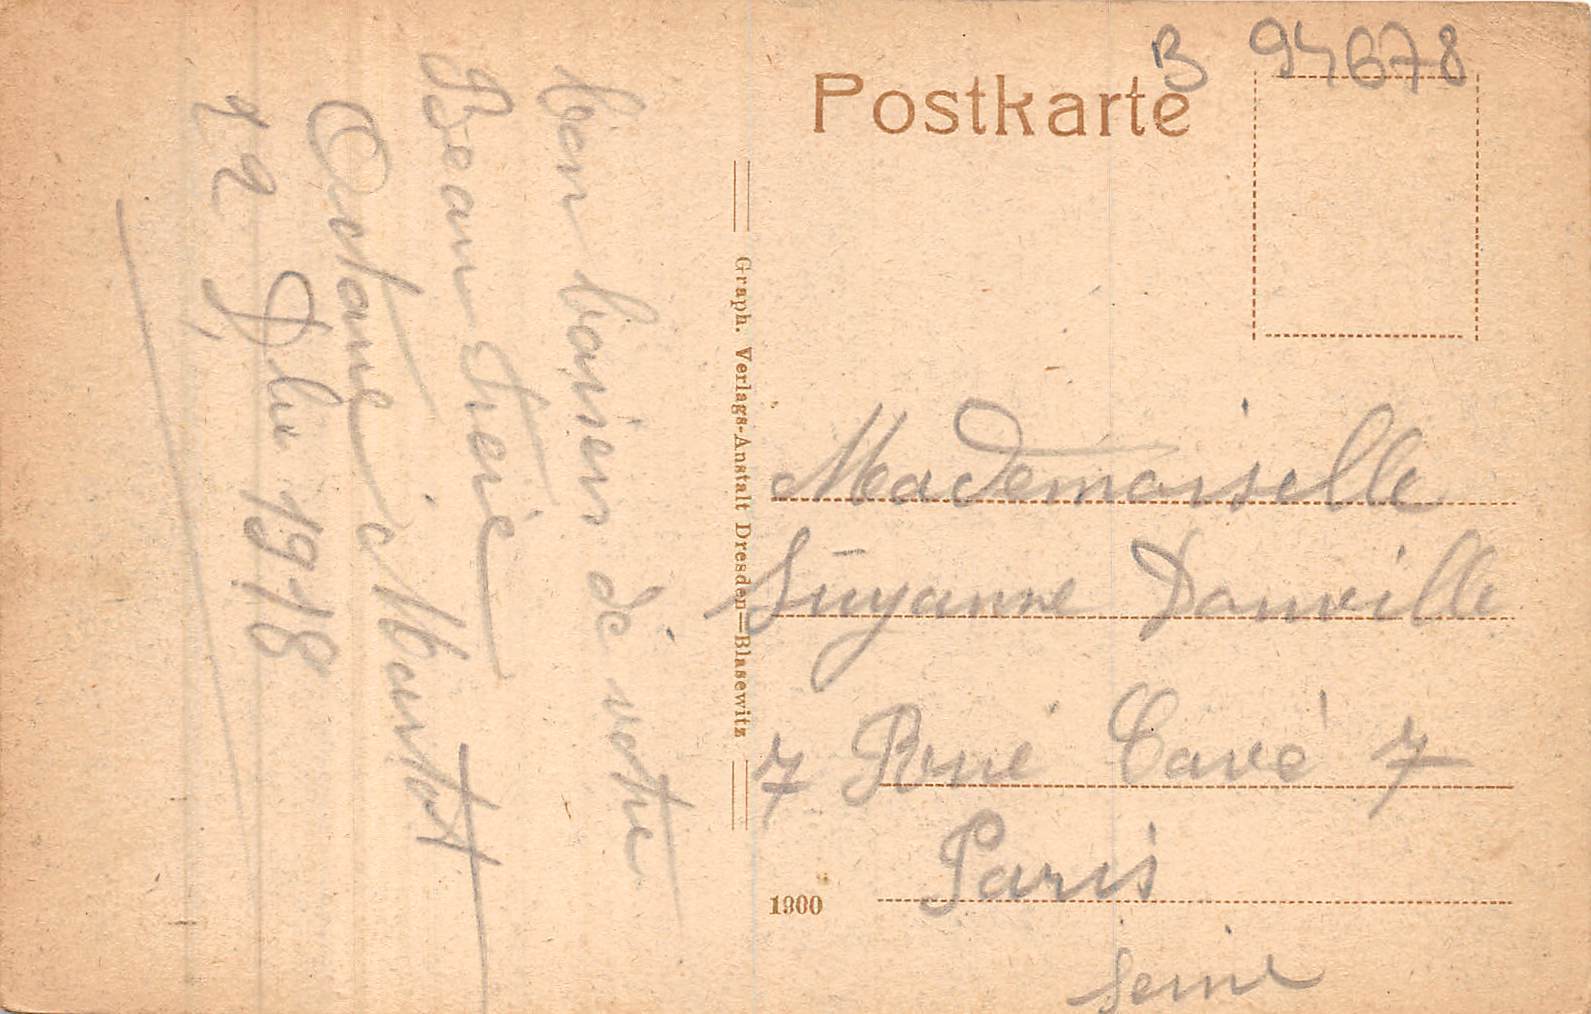 B 94678
Postkarte
bon baiser de votre
Beau Frère
Octave
1918
Graph. Verlags-Anstalt Dresden=Blasewitz
Mademoiselle
Suzanne Danville
7 Rue Cavé 7
Paris
Seine
1900